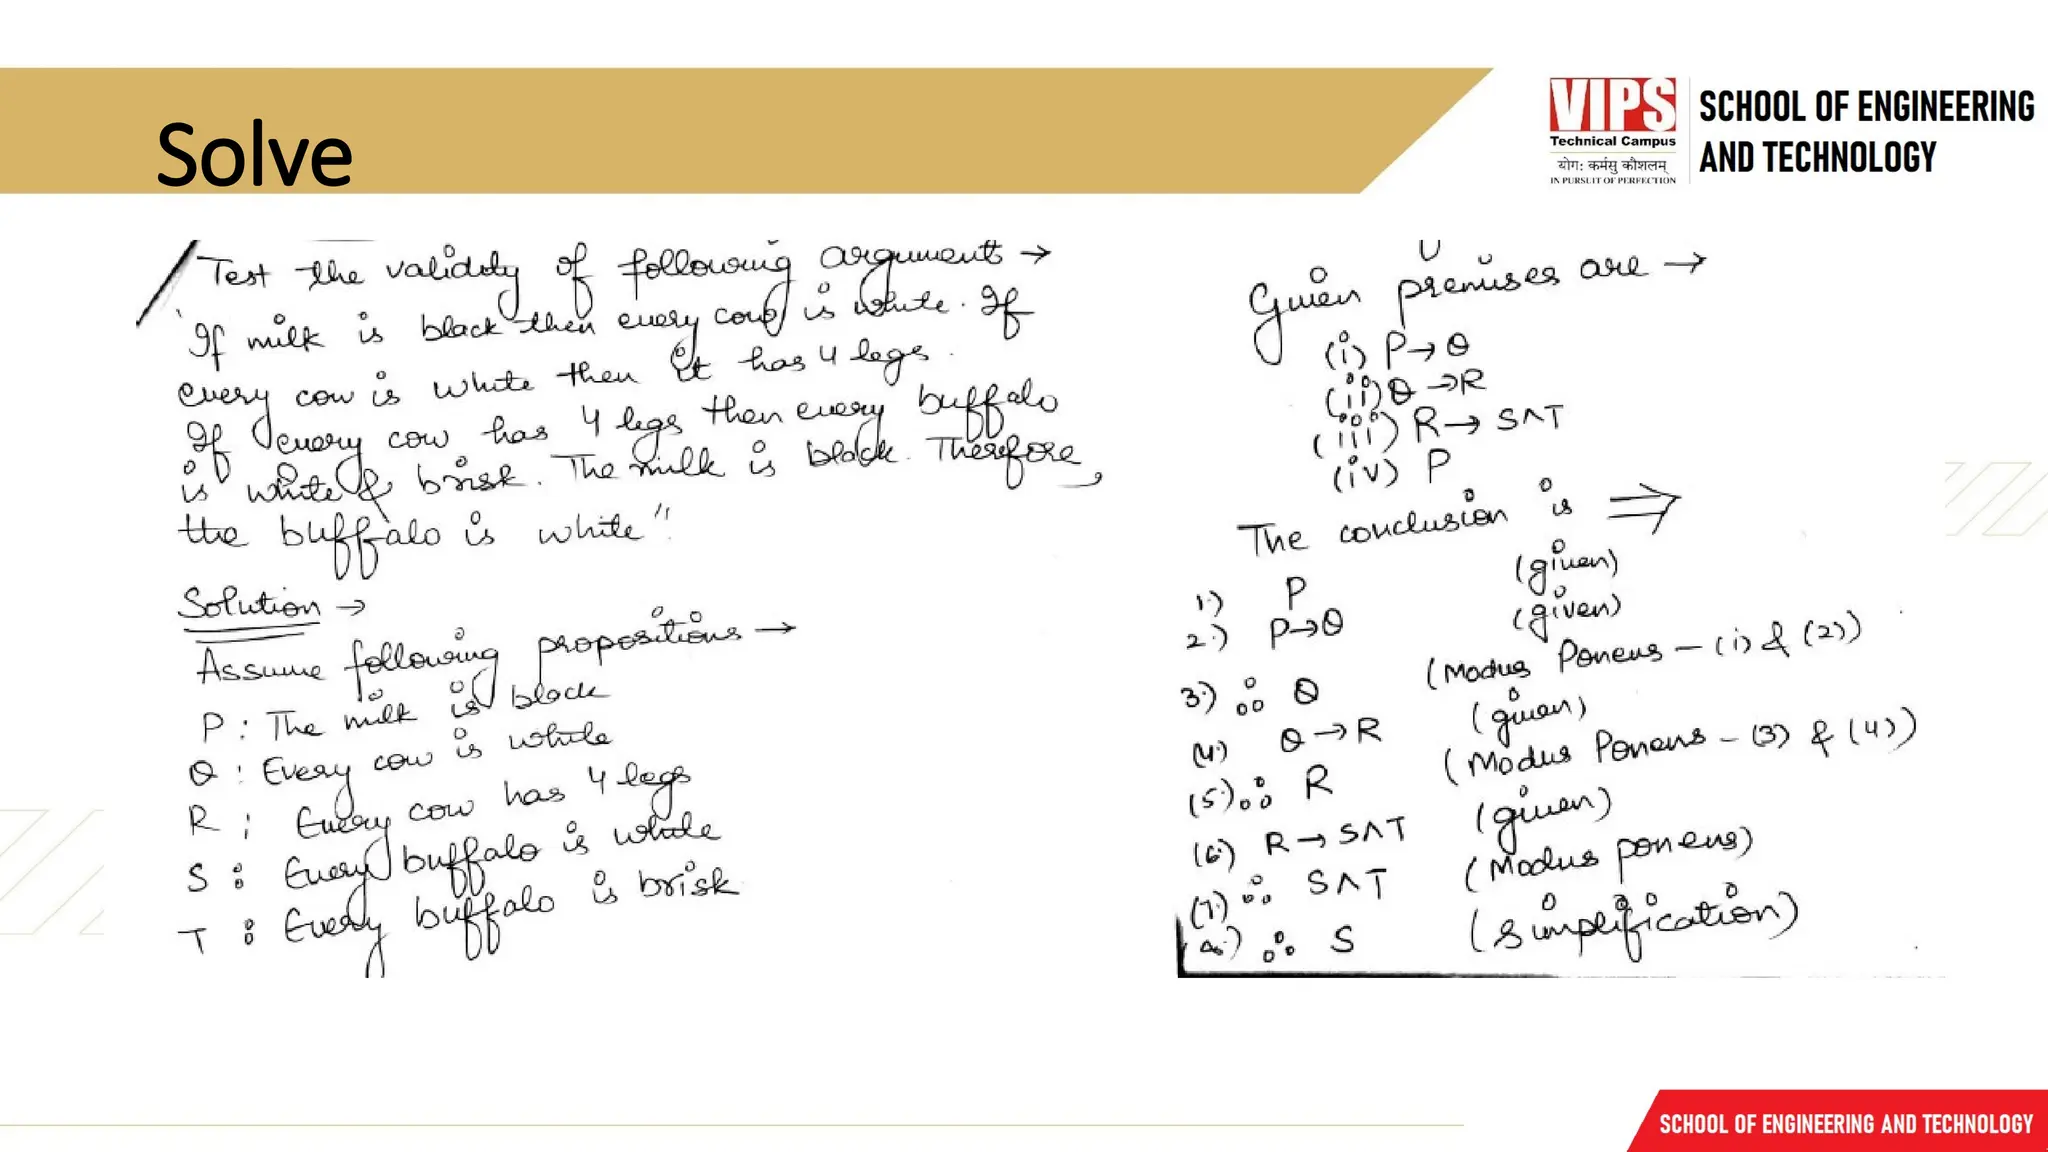 Solve
VIPS
Technical Campus
योग: कर्मसु कौशलम्
IN PURSUIT OF PERFECTION
SCHOOL OF ENGINEERING
AND TECHNOLOGY
Test the validity of following argument →
"If milk is black then every cow is white. If
every cow is white then it has 4 legs.
If every cow has 4 legs then every buffalo
is white & brisk. The milk is black. Therefore,
the buffalo is white".
Solution →
Assume following propositions →
P : The milk is black
Q : Every cow is white
R : Every cow has 4 legs
S : Every buffalo is white
T : Every buffalo is brisk
Given premises are →
(i) P→Q
(ii) Q→R
(iii) R→ S∧T
(iv) P
The conclusion is ⇒
1.) P (given)
2.) P→Q (given)
3.) ∴ Q (Modus Ponens – (1) & (2))
(4.) Q→R (given)
(5.) ∴ R (Modus Ponens – (3) & (4))
(6.) R→ S∧T (given)
(7.) ∴ S∧T (Modus ponens)
(8.) ∴ S (simplification)
SCHOOL OF ENGINEERING AND TECHNOLOGY